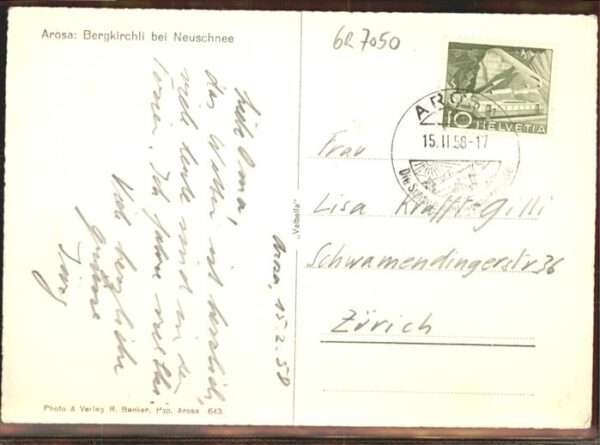 Arosa: Bergkirchli bei Neuschnee
6R 7050
AROSA
15.II.58-17
Die S
10 HELVETIA
Arosa, 15.2.58
Liebe Oma!
das Wetter ist herrlich,
noch heute und in der
Sonne. Ich fahre
Viele herzliche
Grüsse
Jürg
Frau
Lisa Krafft-Gilli
Schwamendingerstr 36
Zürich
„Veltaile“
Photo & Verlag R. Banker, Pap. Arosa 643